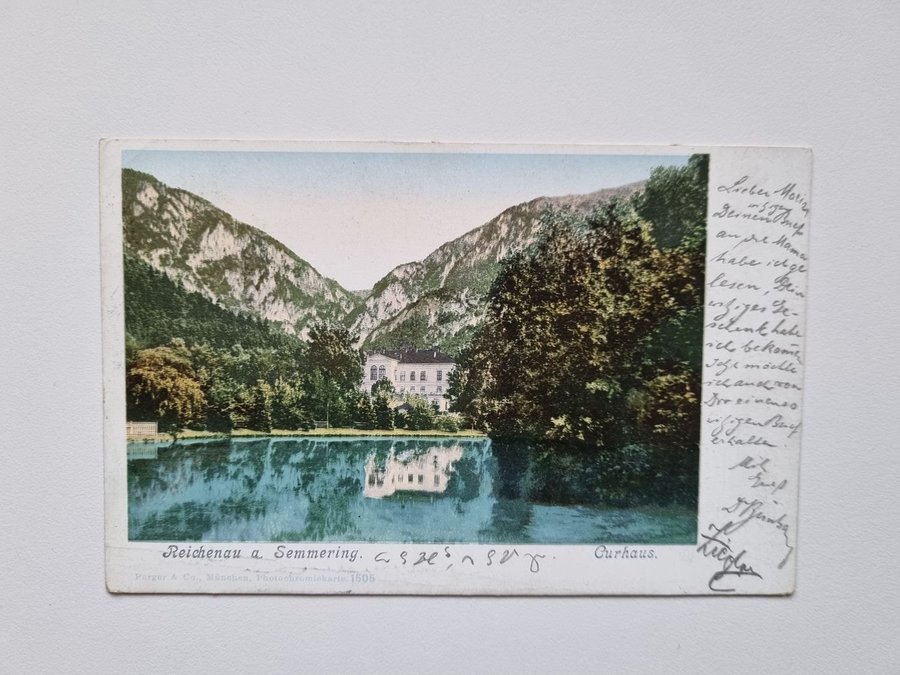 Lieber Moriz
witzigen
Deinen Brief
an die Mama
habe ich ge
lesen, Dein
witziges Ge-
schenk habe
ich bekommen
möchte
ich auch von
Dir einen
witzigen Brief
erhalten.
Mit
Gruß
Reichenau a. Semmering.
Curhaus.
Purger & Co., München, Photochromiekarte. 1505